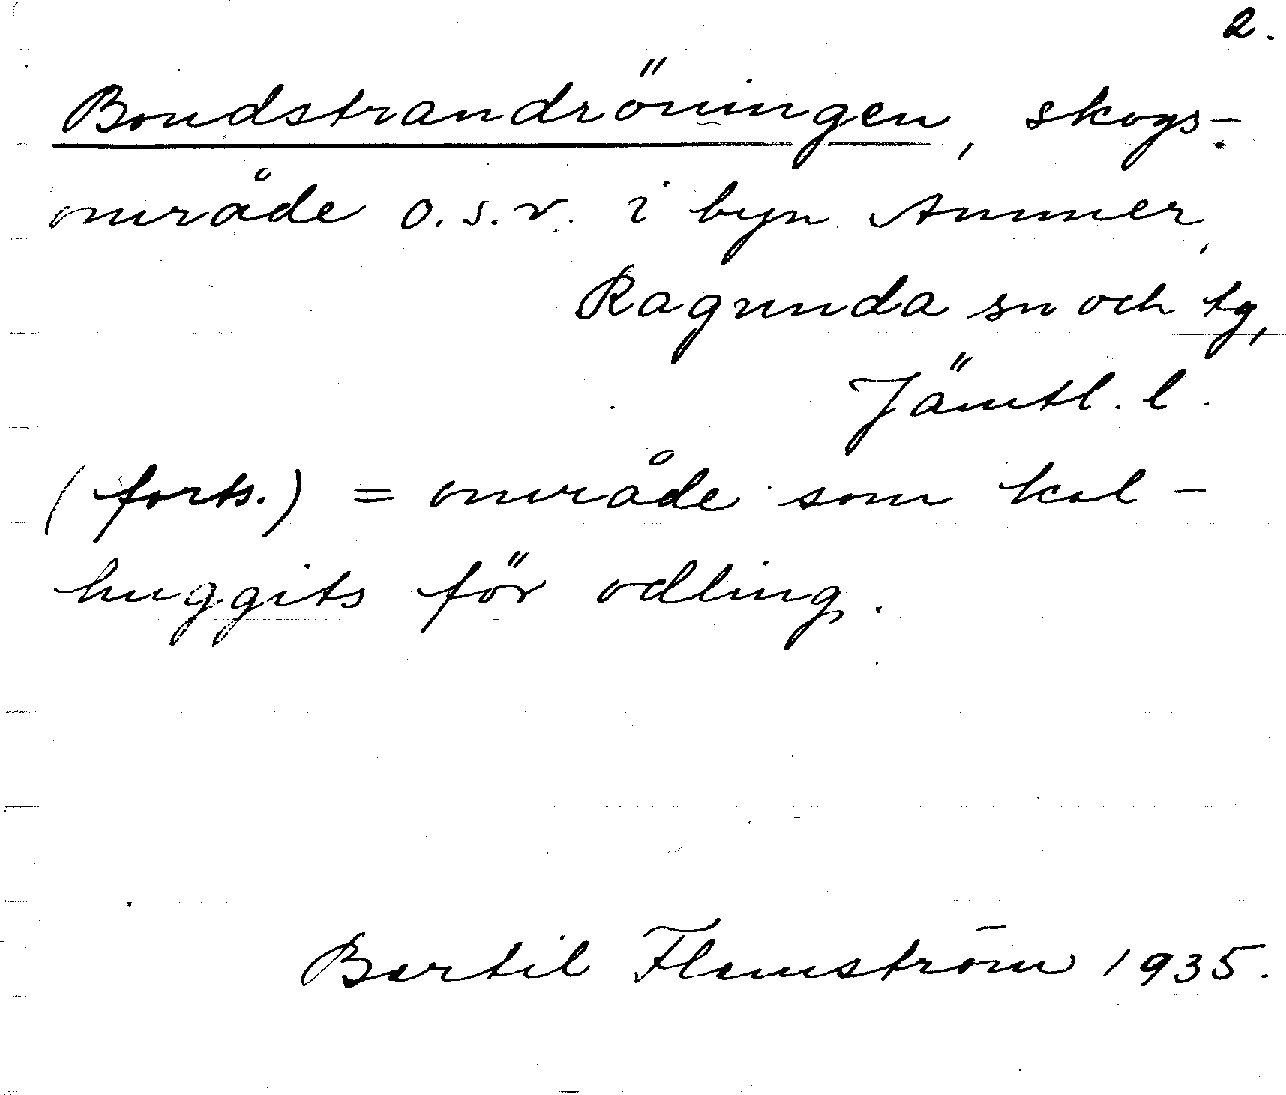 2.
Bondstrandröningen, skogs-
område o.s.v. i byn Ammer,
Ragunda sn och tg,
Jämtl. l.
(forts.) = område som kal-
huggits för odling.
Bertil Flemström 1935.